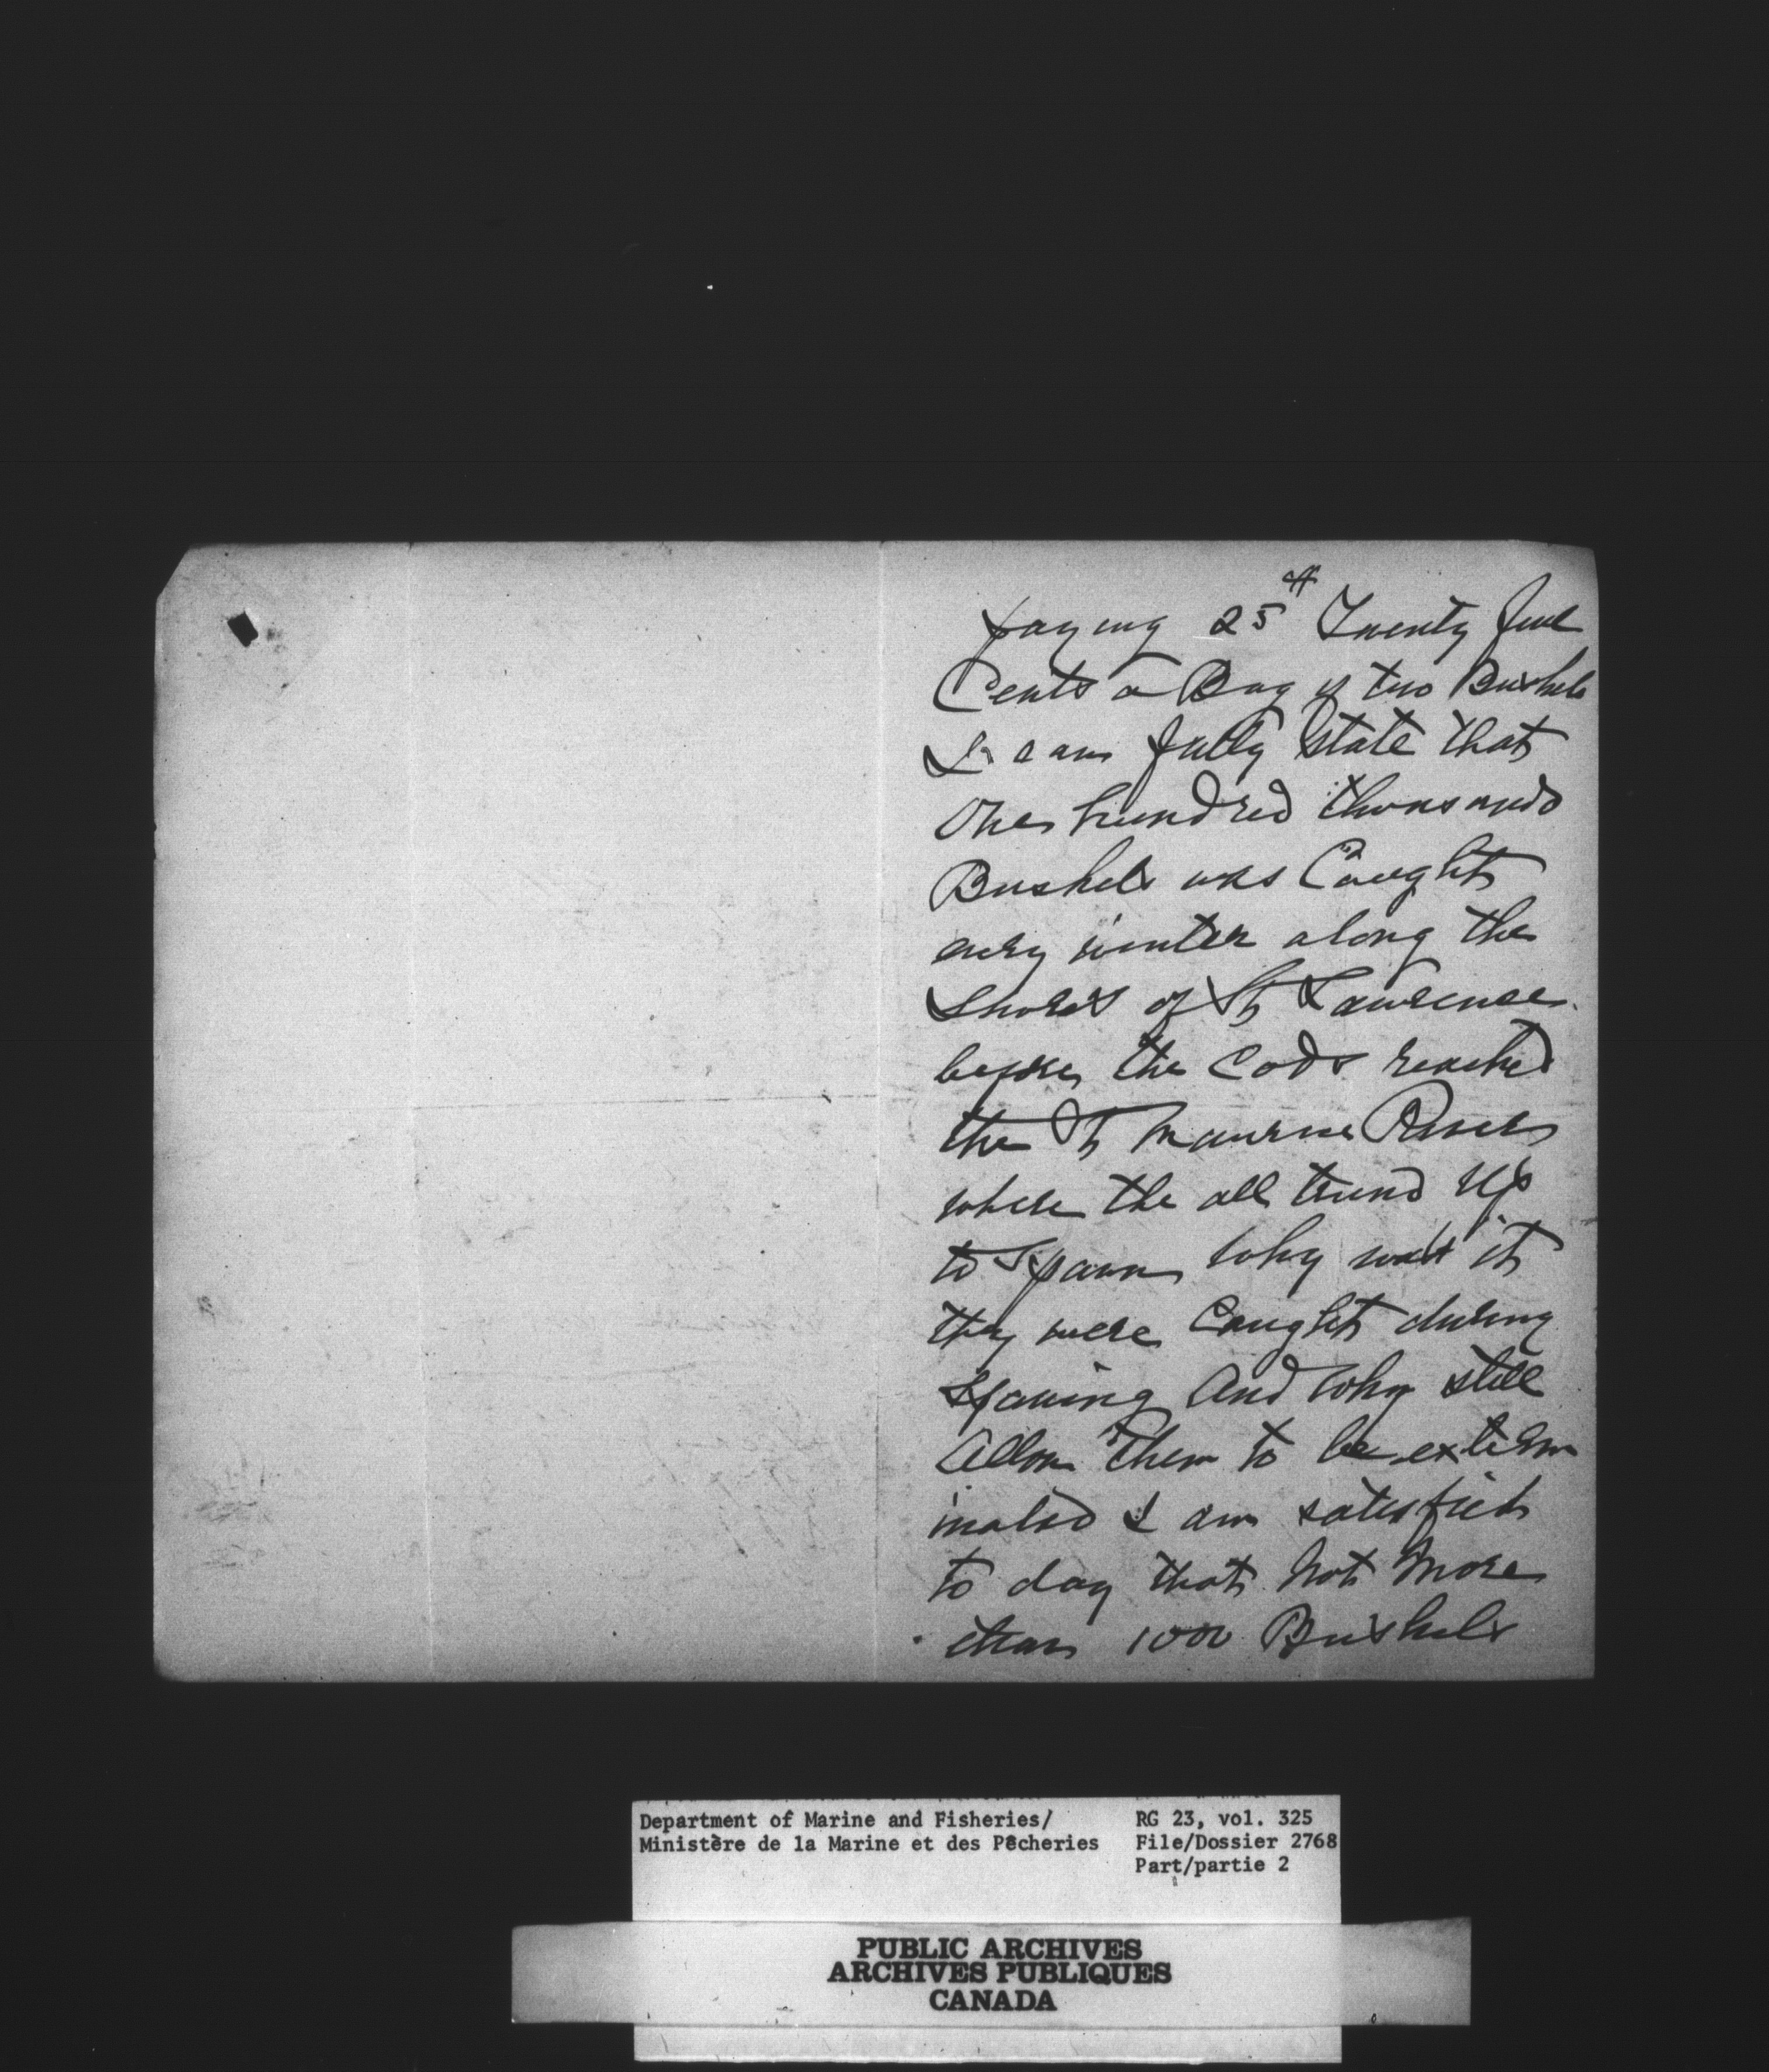 paying 25 cts Twenty five
Cents a Bag of two Bushels
I can fully state that
One hundred thousand
Bushels was Caught
every winter along the
Shores of St Lawrence
before the Cods reached
the St Maurice River
where the all trend up
to Spawn Why wast it
they were Caught during
Spawing And Why still
Allow them to be exterm
inated I am satisfied
to day that Not More
than 1000 Bushels
Department of Marine and Fisheries/
Ministère de la Marine et des Pêcheries
RG 23, vol. 325
File/Dossier 2768
Part/partie 2
PUBLIC ARCHIVES
ARCHIVES PUBLIQUES
CANADA